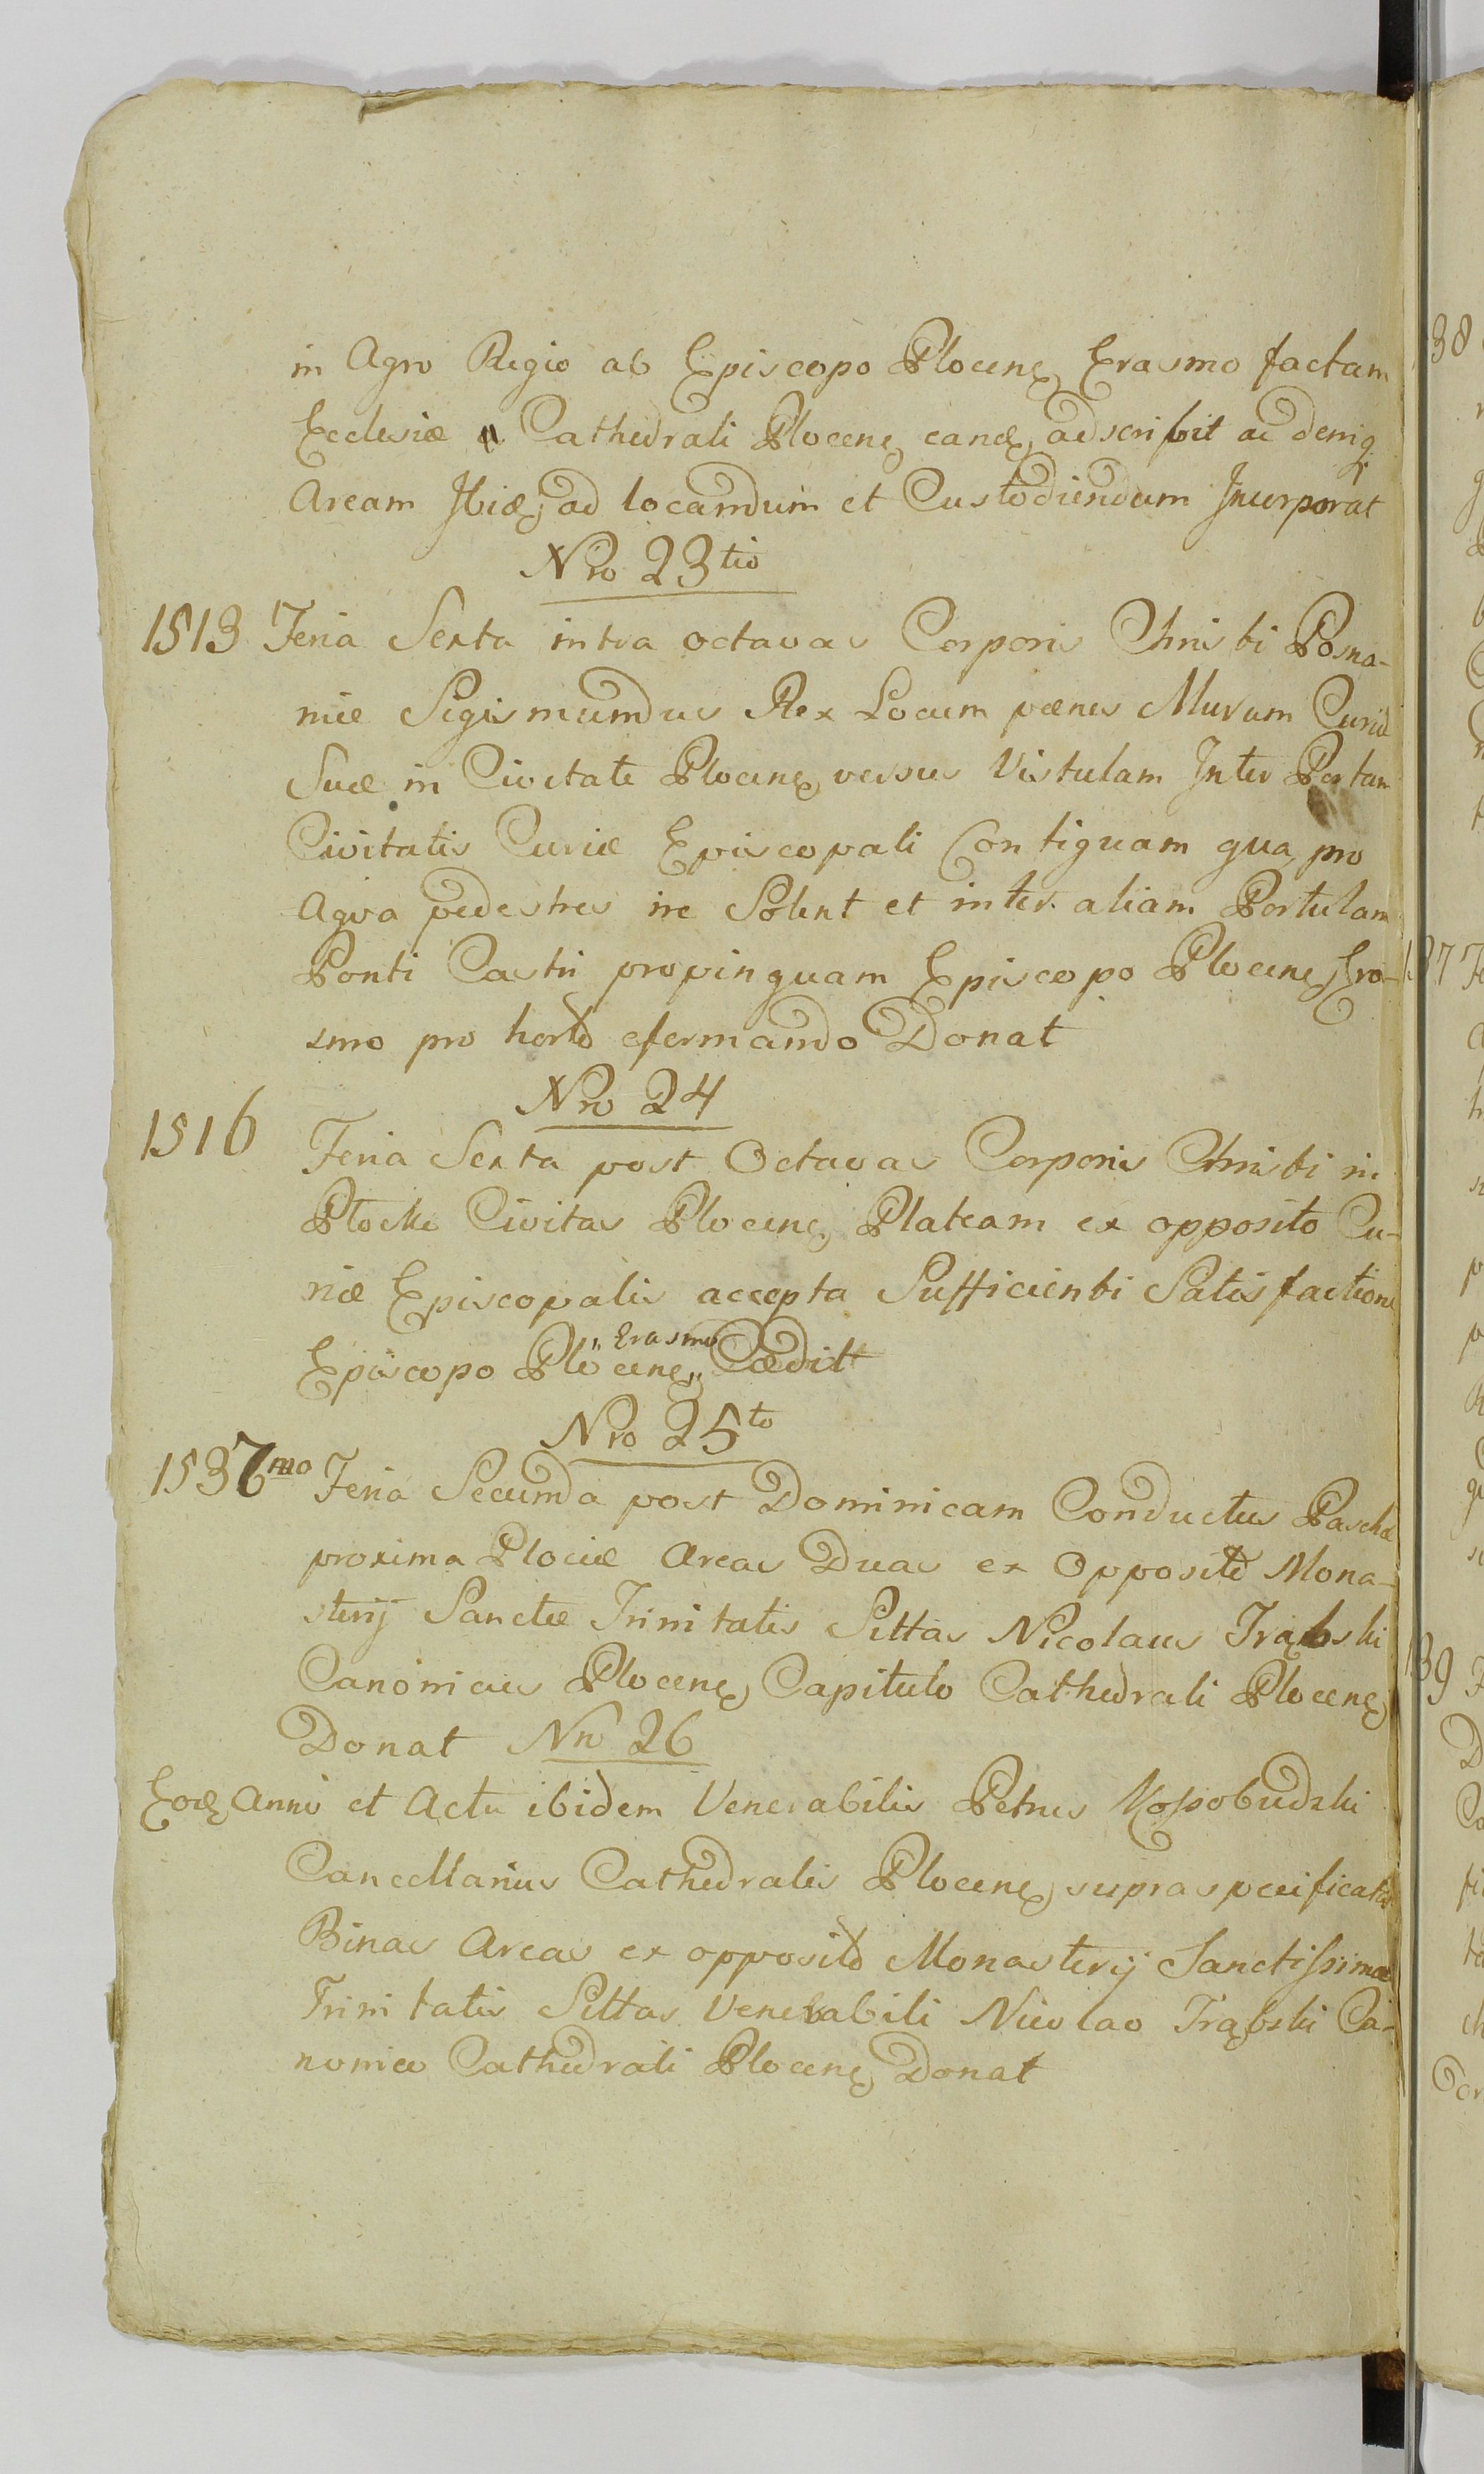 in Agro Regio ab Episcopo Plocenę Erasmo factam
Ecclesiæ Cathedrali Plocenę eandę adscribit ac deniq
Aream Ibidę ad locandum et Custodiendum Incorporat
Nro 23tio
1513 Feria Sexta intra octavas Corporis Christi Posna-
niæ Sigismundus Rex Locum pænes Murum Curiæ
Suæ in Civitate Plocenę versus Vistulam Inter Portam
Civitatis Curiæ Episcopali Contiguam qua pro
Aqva pedestres ire Solent et inter aliam Portulam
Ponti Castri propinquam Episcopo Plocenę Era-
smo pro horto efermando Donat
Nro 24
1516 Feria Sexta post Octavas Corporis Christi in
Plocko Civitas Plocenę Plateam ex opposito Cu-
riæ Episcopalis accepta Sufficienti Satisfactione
Episcopo Plocenę „Erasmo„ Cædit
Nro 25to
1537mo Feria Secunda post Dominicam Conductus Paschæ
proxima Plociæ Areas Duas ex Opposito Mona-
sterij Sanctæ Trinitatis Sittas Nicolaus Trąbski
Canonicus Plocenę Capitulo Cathedrali Plocenę
Donat Nro 26
Eodę Anno et Actu ibidem Venerabilis Petrus Kossobudzki
Cancellarius Cathedralis Plocenę supraspecificatas
Binas Areas ex opposito Monasterij Sanctissimæ
Trinitatis Sittas Venerabili Nicolao Trąbski Ca-
nonico Cathedrali Plocenę Donat